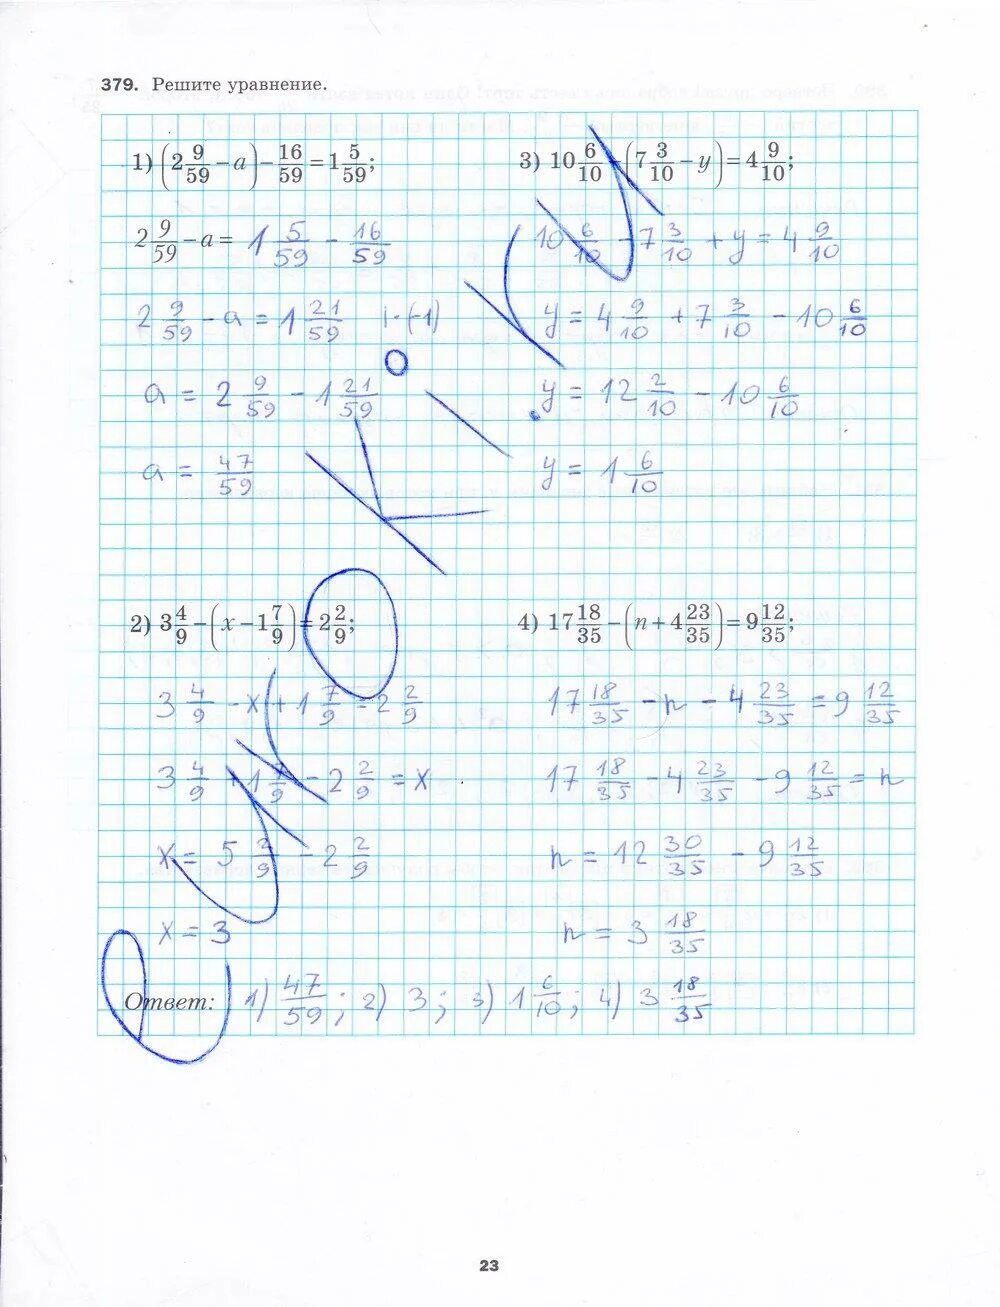 379. Решите уравнение.
1) (2 9/59 − a) − 16/59 = 1 5/59;
2 9/59 − a = 1 5/59 − 16/59
2 9/59 − a = 1 21/59 |·(−1)
a = 2 9/59 − 1 21/59
a = 47/59
3) 10 6/10 − (7 3/10 − y) = 4 9/10;
10 6/10 − 7 3/10 + y = 4 9/10
y = 4 9/10 + 7 3/10 − 10 6/10
y = 12 2/10 − 10 6/10
y = 1 6/10
2) 3 4/9 − (x − 1 7/9) = 2 2/9;
3 4/9 − x + 1 7/9 = 2 2/9
3 4/9 + 1 7/9 − 2 2/9 = x
x = 5 2/9 − 2 2/9
x = 3
4) 17 18/35 − (n + 4 23/35) = 9 12/35;
17 18/35 − n − 4 23/35 = 9 12/35
17 18/35 − 4 23/35 − 9 12/35 = n
n = 12 30/35 − 9 12/35
n = 3 18/35
Ответ: 1) 47/59; 2) 3; 3) 1 6/10; 4) 3 18/35
23